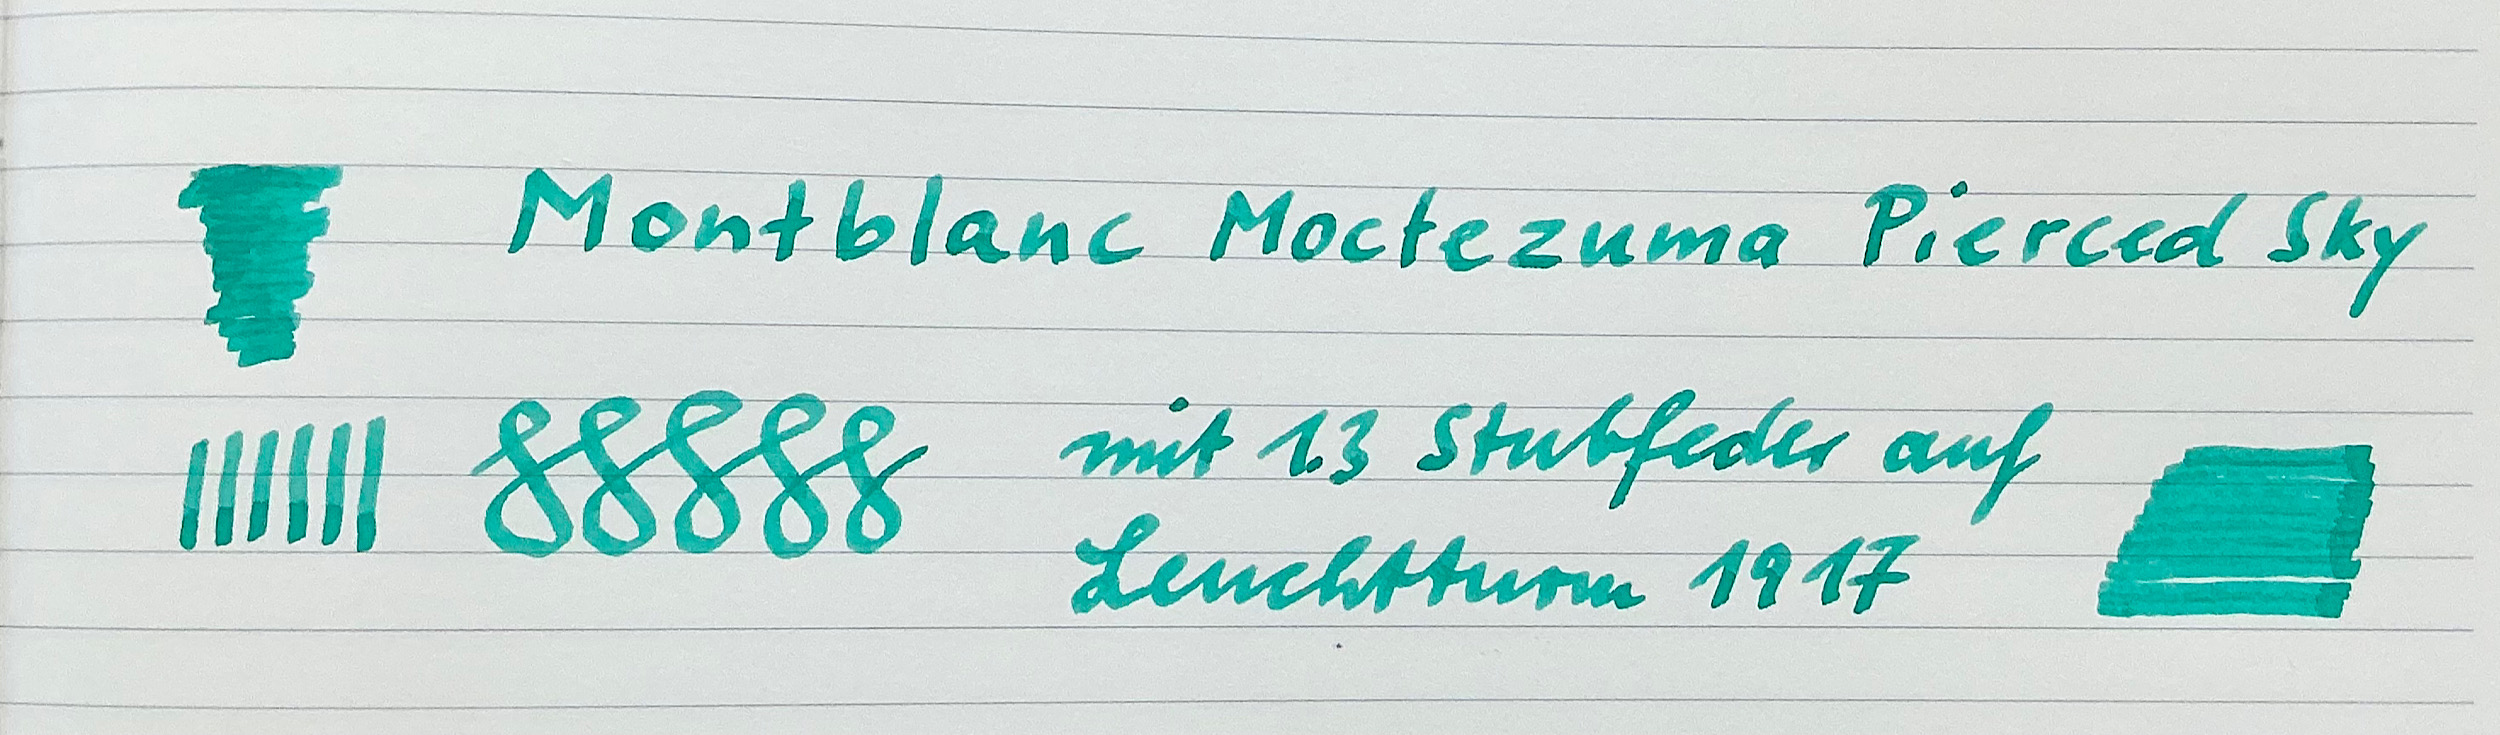 Montblanc Moctezuma Pierced Sky
mit 1.3 Stubfeder auf
Leuchtturm 1917